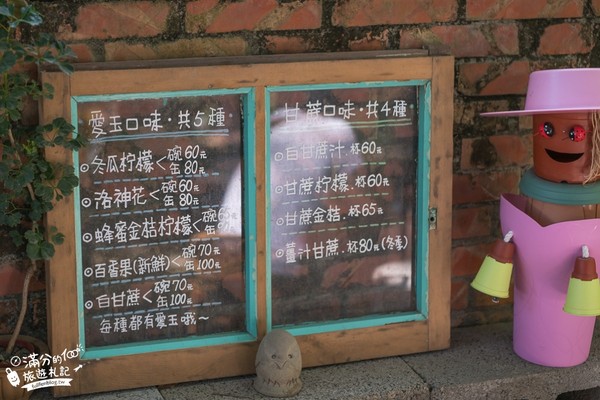 愛玉口味·共5種
冬瓜柠檬<碗60元
缶80元
洛神花<碗60元
缶80元
蜂蜜金桔柠檬<碗
缶
百香果(新鮮)<碗70元
缶100元
白甘蔗<碗70元
缶100元
每種都有愛玉哦~
甘蔗口味·共4種
白甘蔗汁.杯60元
甘蔗柠檬.杯60元
甘蔗金桔.杯65元
薑汁甘蔗.杯80元(冬季)
滿分的
旅遊札記